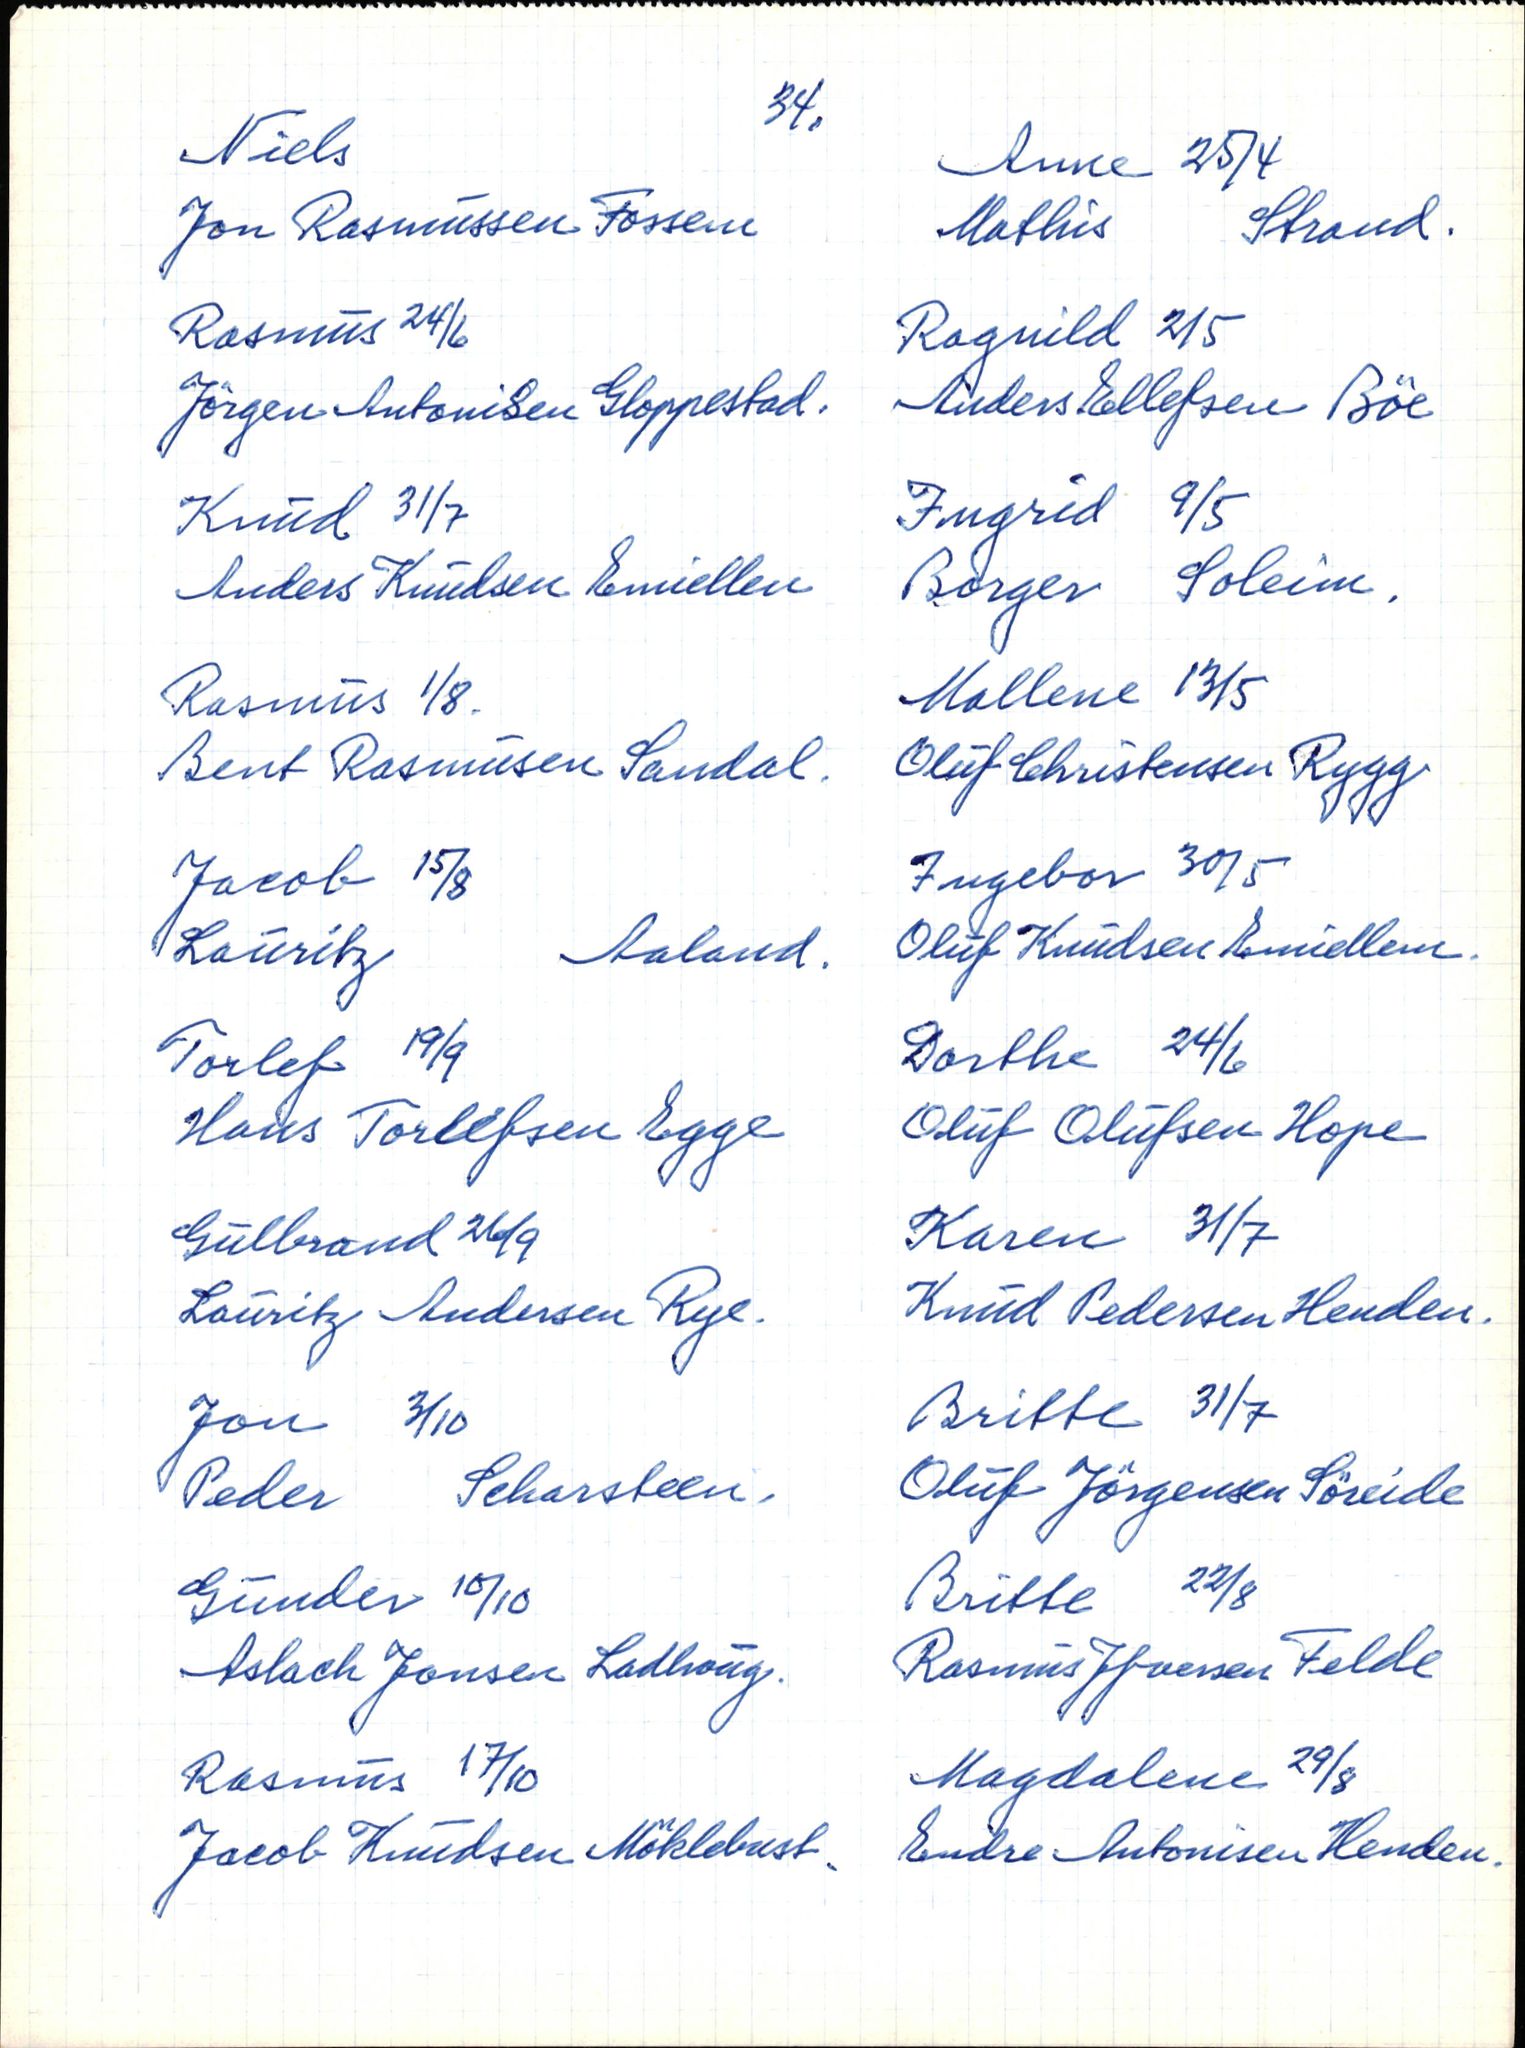 34.
Niels
Jon Rasmussen Fossem
Rasmus 24/6
Jörgen Antonisen Gloppestad.
Knud 31/7
Anders Knudsen Emiellen
Rasmus 1/8.
Bent Rasmusen Sandal.
Jacob 15/8
Lauritz Aaland.
Torlef 19/9
Hans Torlefsen Egge
Gulbrand 26/9
Lauritz Andersen Rye.
Jon 3/10
Peder Scharsteen.
Gunder 10/10
Aslach Jonsen Ladhoug.
Rasmus 17/10
Jacob Knudsen Möklebust.
Anne 25/4
Mathis Strand.
Ragnild 2/5
Anders Ellefsen Böe
Ingrid 9/5
Borger Soleim.
Mallene 13/5
Oluf Christensen Rygg
Ingebor 30/5
Oluf Knudsen Emiellem.
Dorthe 24/6
Oluf Olufsen Hope
Karen 31/7
Knud Pedersen Henden.
Britte 31/7
Oluf Jörgensen Söreide
Britte 22/8
Rasmus Felde
Magdalene 29/8
Endre Antonisen Henden.